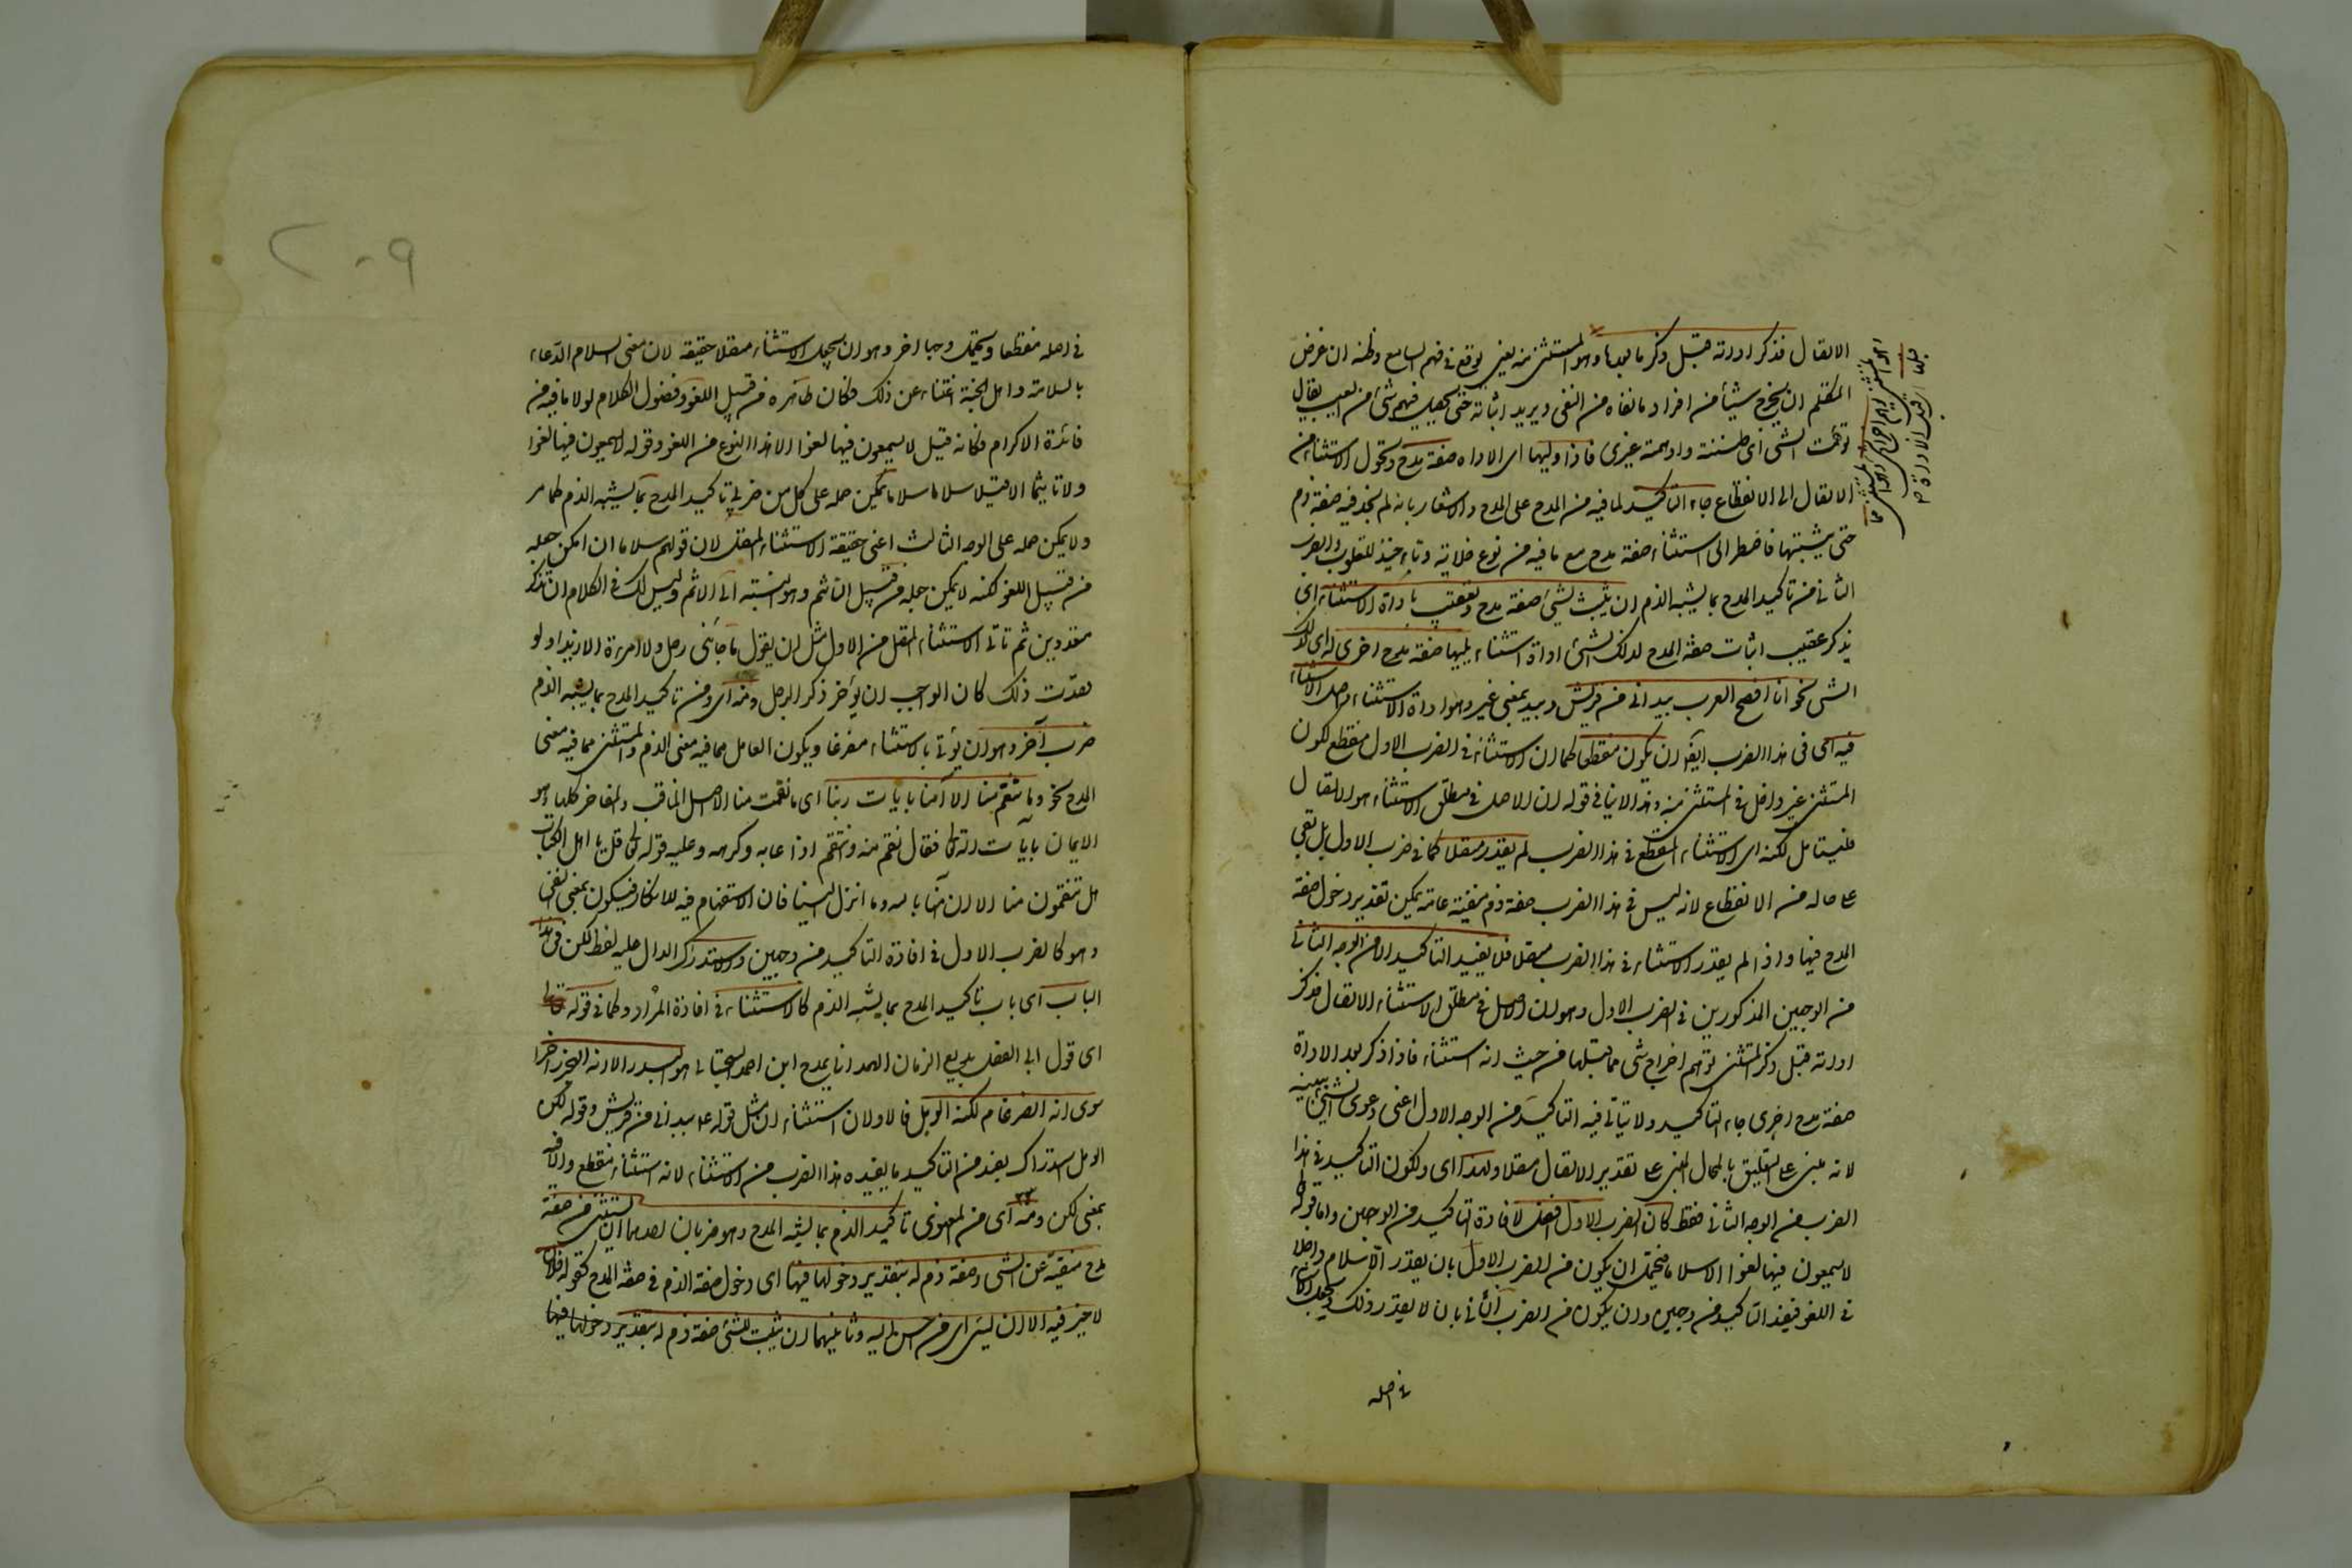 الاتصال فذكر اداته قبل ذكر ما بعدها وهو المستثنى منه يعنى يوقع فى فهم السامع وظنه ان غرض
المتكلم ان يخرج شيأ من افراد ما نفاه من النفى ويريد اثباته حتى يحصل فيهم شئ من العيب يقال
توهمت الشئ اى ظننته واوهمته غيرى فاذا وليها اى الاداة صفة مدح وتحول الاستثناء من
الاتصال الى الانقطاع جاء التاكيد لما فيه من المدح على المدح والاشعار بانه لم يجد فيه صفة ذم
حتى يثبتها فاضطر الى استثناء صفة مدح مع ما فيه من نوع خلابة وتاخيذ للقلوب والضرب
الثانى من تاكيد المدح بما يشبه الذم ان يثبت لشئ صفة مدح وتعقيب باداة الاستثناء اى
يذكر عقيب اثبات صفة المدح لذلك الشئ اداة استثناء يليها صفة مدح اخرى له اى لذلك
الشئ نحو انا افصح العرب بيد انى من قريش وبيد بمعنى غير وهو اداة الاستثناء واصل الاستثناء
فيه اى فى هذا الضرب ايضا ان يكون منقطعا كما ان الاستثناء فى الضرب الاول منقطع لكون
المستثنى غير داخل فى المستثنى منه وهذا لا ينافى قوله ان الاصل فى مطلق الاستثناء هو الاتصال
فليتامل لكنه اى الاستثناء المنقطع فى هذا الضرب لم يقدر متصلا كما فى ضرب الاول بل بقى
على حاله من الانقطاع لانه ليس فى هذا الضرب صفة ذم منفية عامة يمكن تقدير دخول صفة
المدح فيها واذا لم يقدر الاستثناء فى هذا الضرب متصلا فلا يفيد التاكيد الا من الوجه الثانى
من الوجهين المذكورين فى الضرب الاول وهو ان الاصل فى مطلق الاستثناء الاتصال فذكر
اداته قبل ذكر المستثنى توهم اخراج شئ مما قبلها من حيث انه استثناء فاذا ذكر بعد الاداة
صفة مدح اخرى جاء التاكيد ولا يتأتى فيه التاكيد من الوجه الاول اعنى دعوى الشئ ببينة
لانه مبنى على التعليق بالمحال المبنى على تقدير الاتصال متصلا ولهذا اى ولكون التاكيد فى هذا
الضرب من الوجه الثانى فقط كان الضرب الاول افضل لافادة التاكيد من الوجهين واما قوله تعالى
لا يسمعون فيها لغوا الا سلاما فيحتمل ان يكون من الضرب الاول بان يقدر السلام داخلا
فى اللغو فيفيد التاكيد من وجهين وان يكون من الضرب الثانى بان لا يقدر ذلك ويجعل الاستثناء
فى اصله
٢٠٩
فى اصله منقطعا ويحتمل وجها اخر وهو ان يجعل الاستثناء متصلا حقيقة لان معنى السلام الدعاء
بالسلامة واهل الجنة اغنياء عن ذلك فكان ظاهره من قبيل اللغو وفضول الكلام لولا ما فيه من
فائدة الاكرام فكانه قيل لا يسمعون فيها لغوا الا هذا النوع من اللغو وقوله لا يسمعون فيها لغوا
ولا تاثيما الا قيلا سلاما سلاما يمكن حمله على كل من ضربى تاكيد المدح بما يشبه الذم كما مر
ولا يمكن حمله على الوجه الثالث اعنى حقيقة الاستثناء المتصل لان قولهم سلاما ان امكن جعله
من قبيل اللغو لكنه لا يمكن جعله من قبيل التاثيم وهو النسبة الى الاثم وليس لك فى الكلام ان تذكر
متعددين ثم تاتى الاستثناء المتصل من الاول مثل ان يقول ما جائنى رجل ولا امرءة الا زيدا ولو
قصدت ذلك كان الواجب ان يؤخر ذكر الرجل ومنه اى ومن تاكيد المدح بما يشبه الذم
ضرب آخر وهو ان يؤتى بالاستثناء مفرغا ويكون العامل مما فيه معنى الذم والمستثنى مما فيه معنى
المدح نحو وما تنقم منا الا آمنا بايات ربنا اى ما نقمت منا الا اصل المناقب والمفاخر كلها وهو
الايمان بايآت الله تعالى فقال نقم منه وانتقم اذا عابه وكرهه وعليه قوله تعالى قل يا اهل الكتاب
هل تنقمون منا الا ان آمنا بالله وما انزل الينا فان الاستفهام فيه للانكار فيكون بمعنى النفى
وهو كالضرب الاول فى افادة التاكيد من وجهين والاستدراك الدال عليه لفظ لكن فى هذا
الباب اى باب تاكيد المدح بما يشبه الذم كالاستثناء فى افادة المراد وكما فى قوله
اى قول ابى الفضل بديع الزمان الهمدانى يمدح ابن احمد السجستانى هو البدر الا انه البحر زاخرا
سوى انه الضرغام لكنه الوبل فالاولان استثناءان مثل قوله ع م بيد انى من قريش وقوله لكنه
الوبل استدراك يفيد من التاكيد ما يفيده هذا الضرب من الاستثناء لانه استثناء منقطع والا فيه
بمعنى لكن ومنه اى من المعنوى تاكيد الذم بما يشبه المدح وهو ضربان احدهما ان يستثنى من صفة
مدح منفية عن الشئ صفة ذم له بتقدير دخولها فيها اى دخول صفة الذم فى صفة المدح كقوله فلان
لا خير فيه الا ان يسئ اى من احسن اليه وثانيهما ان يثبت للشئ صفة ذم له بتقدير دخولها فيها